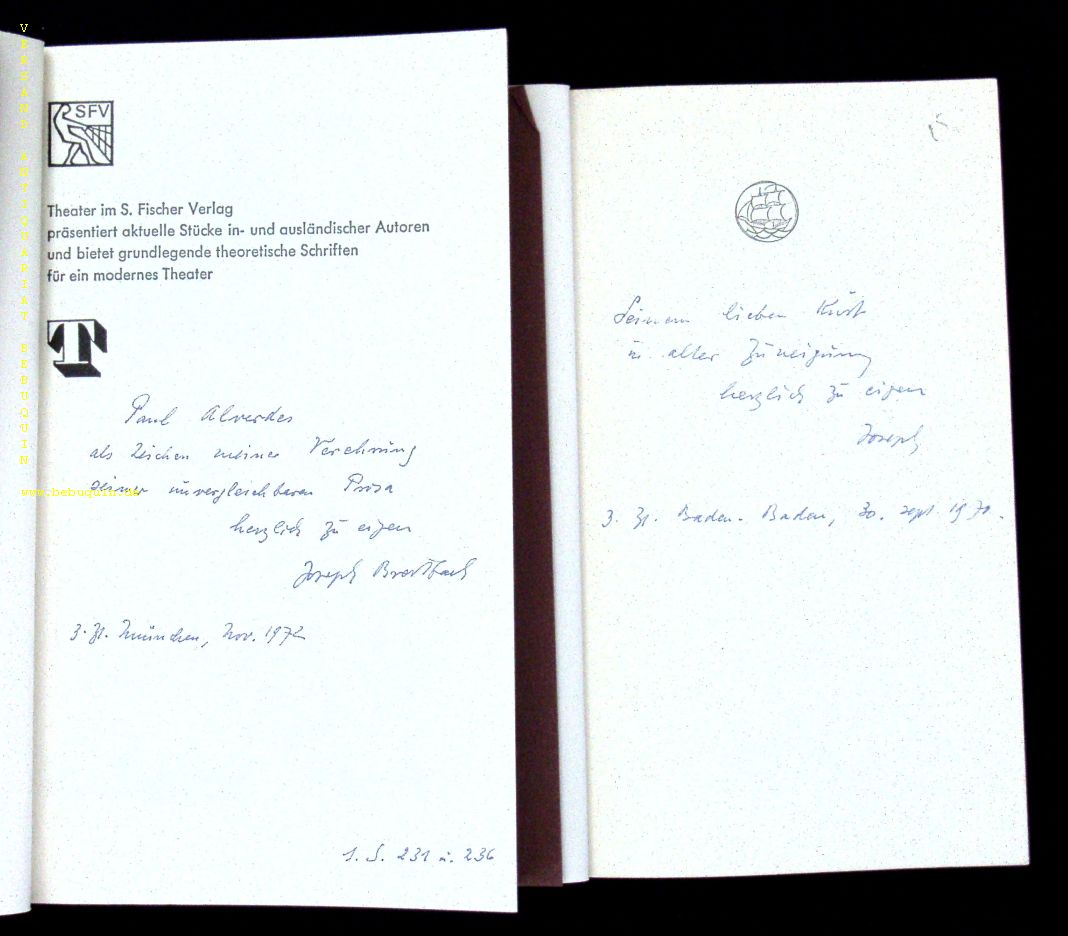 VERSAND ANTIQUARIAT BEBUQUIN
www.bebuquin.de
SFV
Theater im S. Fischer Verlag
präsentiert aktuelle Stücke in- und ausländischer Autoren
und bietet grundlegende theoretische Schriften
für ein modernes Theater
T
Paul Alverdes
als Zeichen meiner Verehrung
seiner unvergleichbaren Prosa
herzlich zu eigen
Joseph Breitbach
z. Zt. München, Nov. 1972
S. 231 u. 236
Seinem lieben Kurt
in alter Zuneigung
herzlich zu eigen
Joseph
z. Zt. Baden-Baden, 30. Sept. 1970.